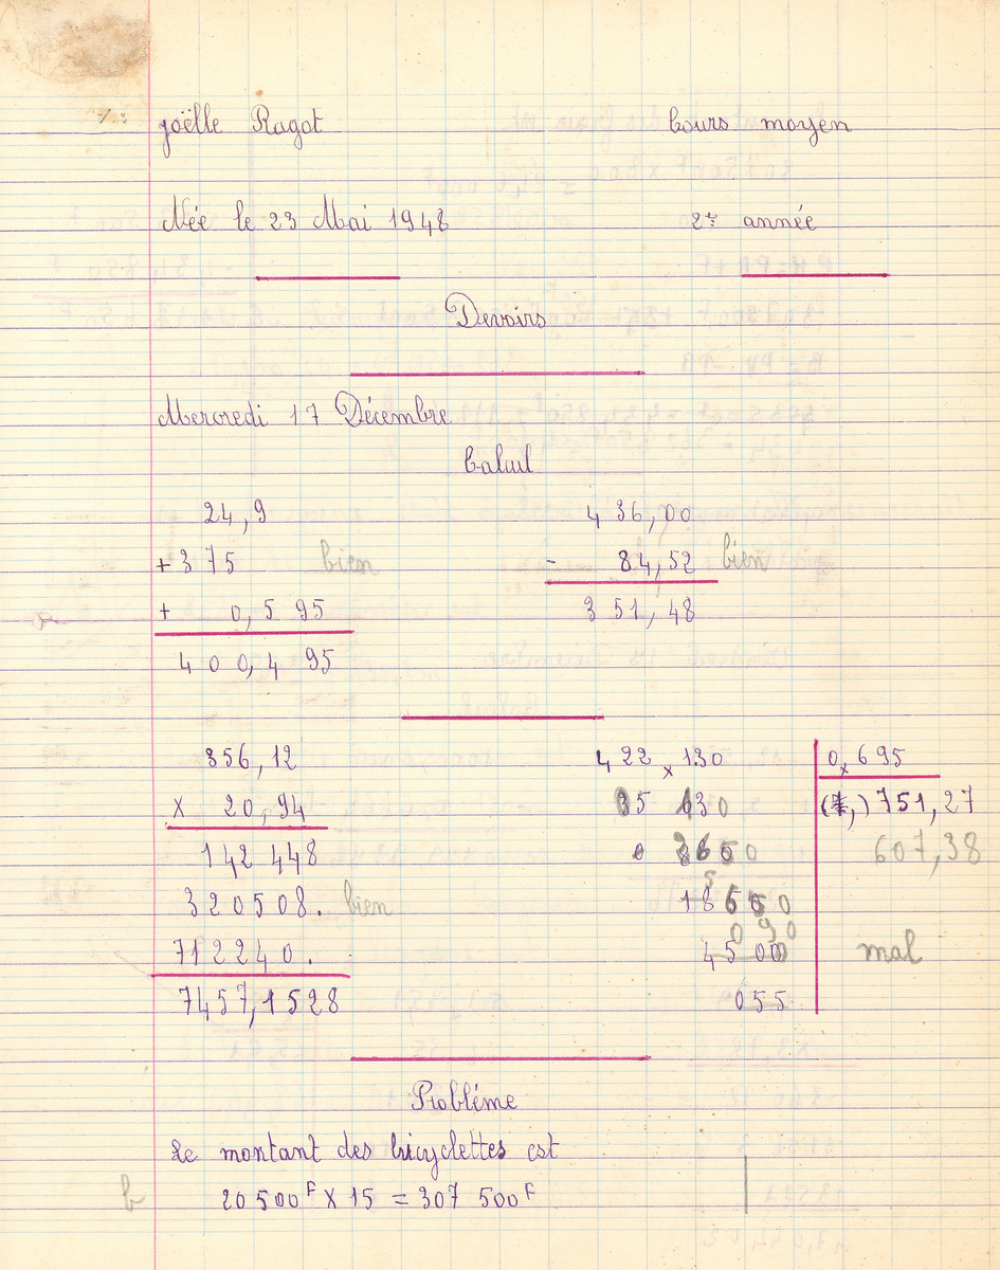 Joëlle Ragot Cours moyen
Née le 23 Mai 1948 2e année
Devoirs
Mercredi 17 Décembre
Calcul
24,9 436,00
+ 375 bien - 84,52 bien
+ 0,595 351,48
400,495
356,12 422,130 0,695
x 20,94 35 630 751,27
142 448 607,38
320508. bien
712240. 4500 mal
7457,1528 055
Probléme
Le montant des bicyclettes est
b 20 500F X 15 = 307 500F